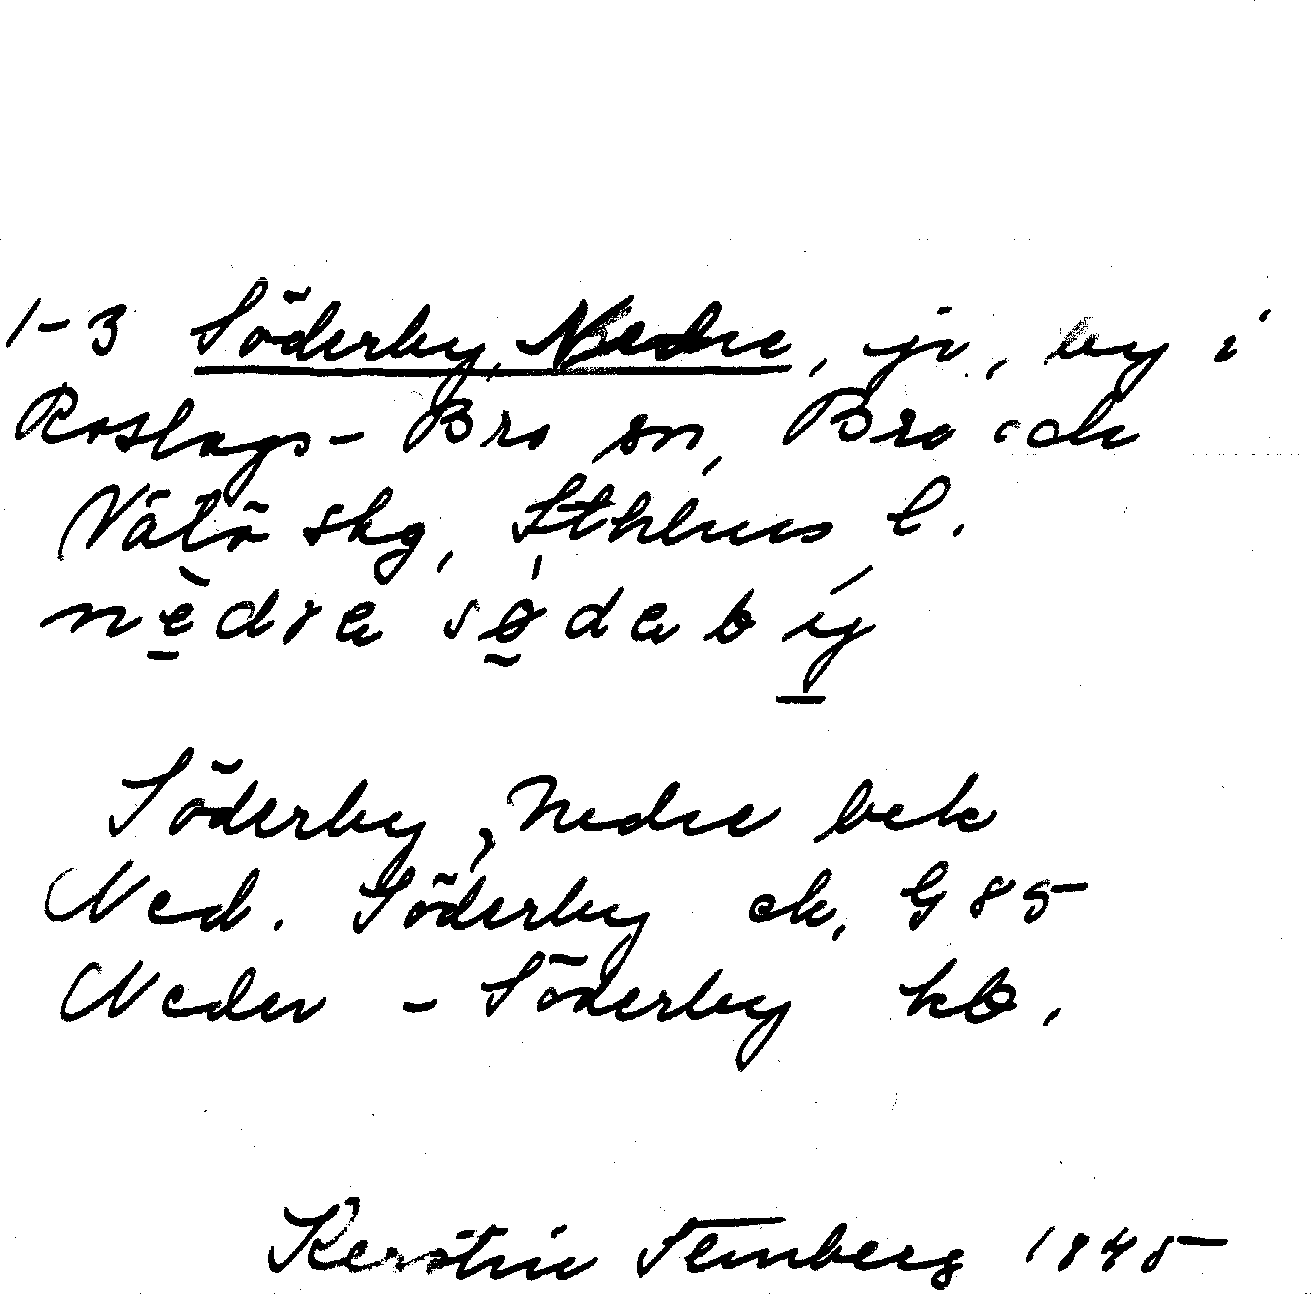 1-3 Söderby, Nedre, jr, by i
Roslags-Bro sn, Bro och
Vätö skg, Sthlms l.
nèdrɐ sødɐbý
Söderby, Nedre bek
Ned. Söderby ek, G 85
Neder-Söderby kb.
Kerstin 1945